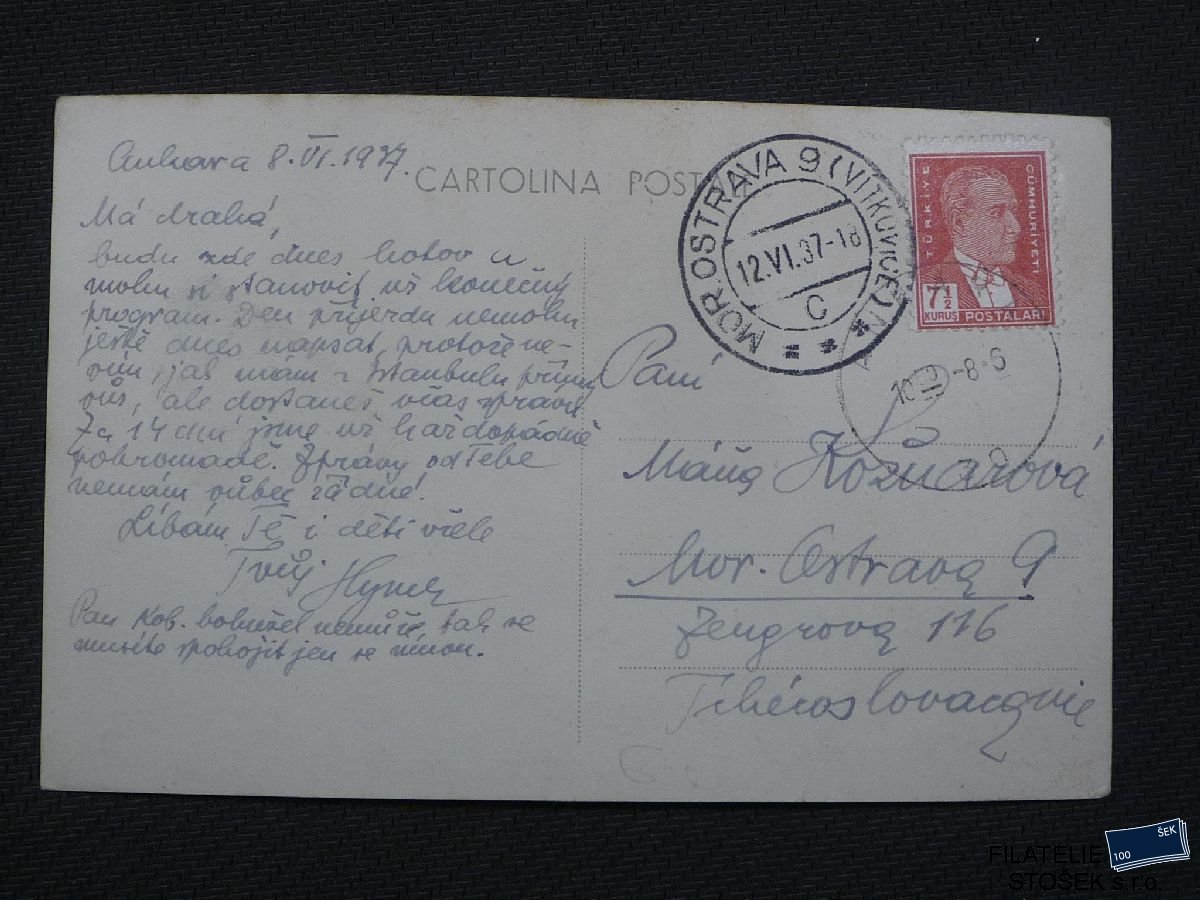 Ankara 8.VI.1937.
CARTOLINA POSTALE
Má drahá,
budu zde dnes hotov a
mohu si stanovit už konečný
program. Den příjezdu nemohu
ještě dnes napsat, protože ne-
vím, jaš mám z Istanbulu přímý
vůs, ale dostaneš včas zprávu.
Za 14 dní jsme už každopádně
pohromadě. Zprávy od Tebe
nemám vůbec žádné.
Líbám Tě i děti vřele
Tvůj Hynek
Pan Kob. bohužel nemůže, tak se
musíte spokojit jen se mnou.
MOR. OSTRAVA 9 (VÍTKOVICE)
12.VI.37-18
C
TÜRKİYE CUMHURİYETİ
7½
KURUŞ POSTALARI
10
-8-6
Paní
Máňa Kožnarová
Mor. Ostrava 9
Zengrova 116
Tchécoslovacquie
100 ŠEK
FILATELIE
STOŠEK s.r.o.